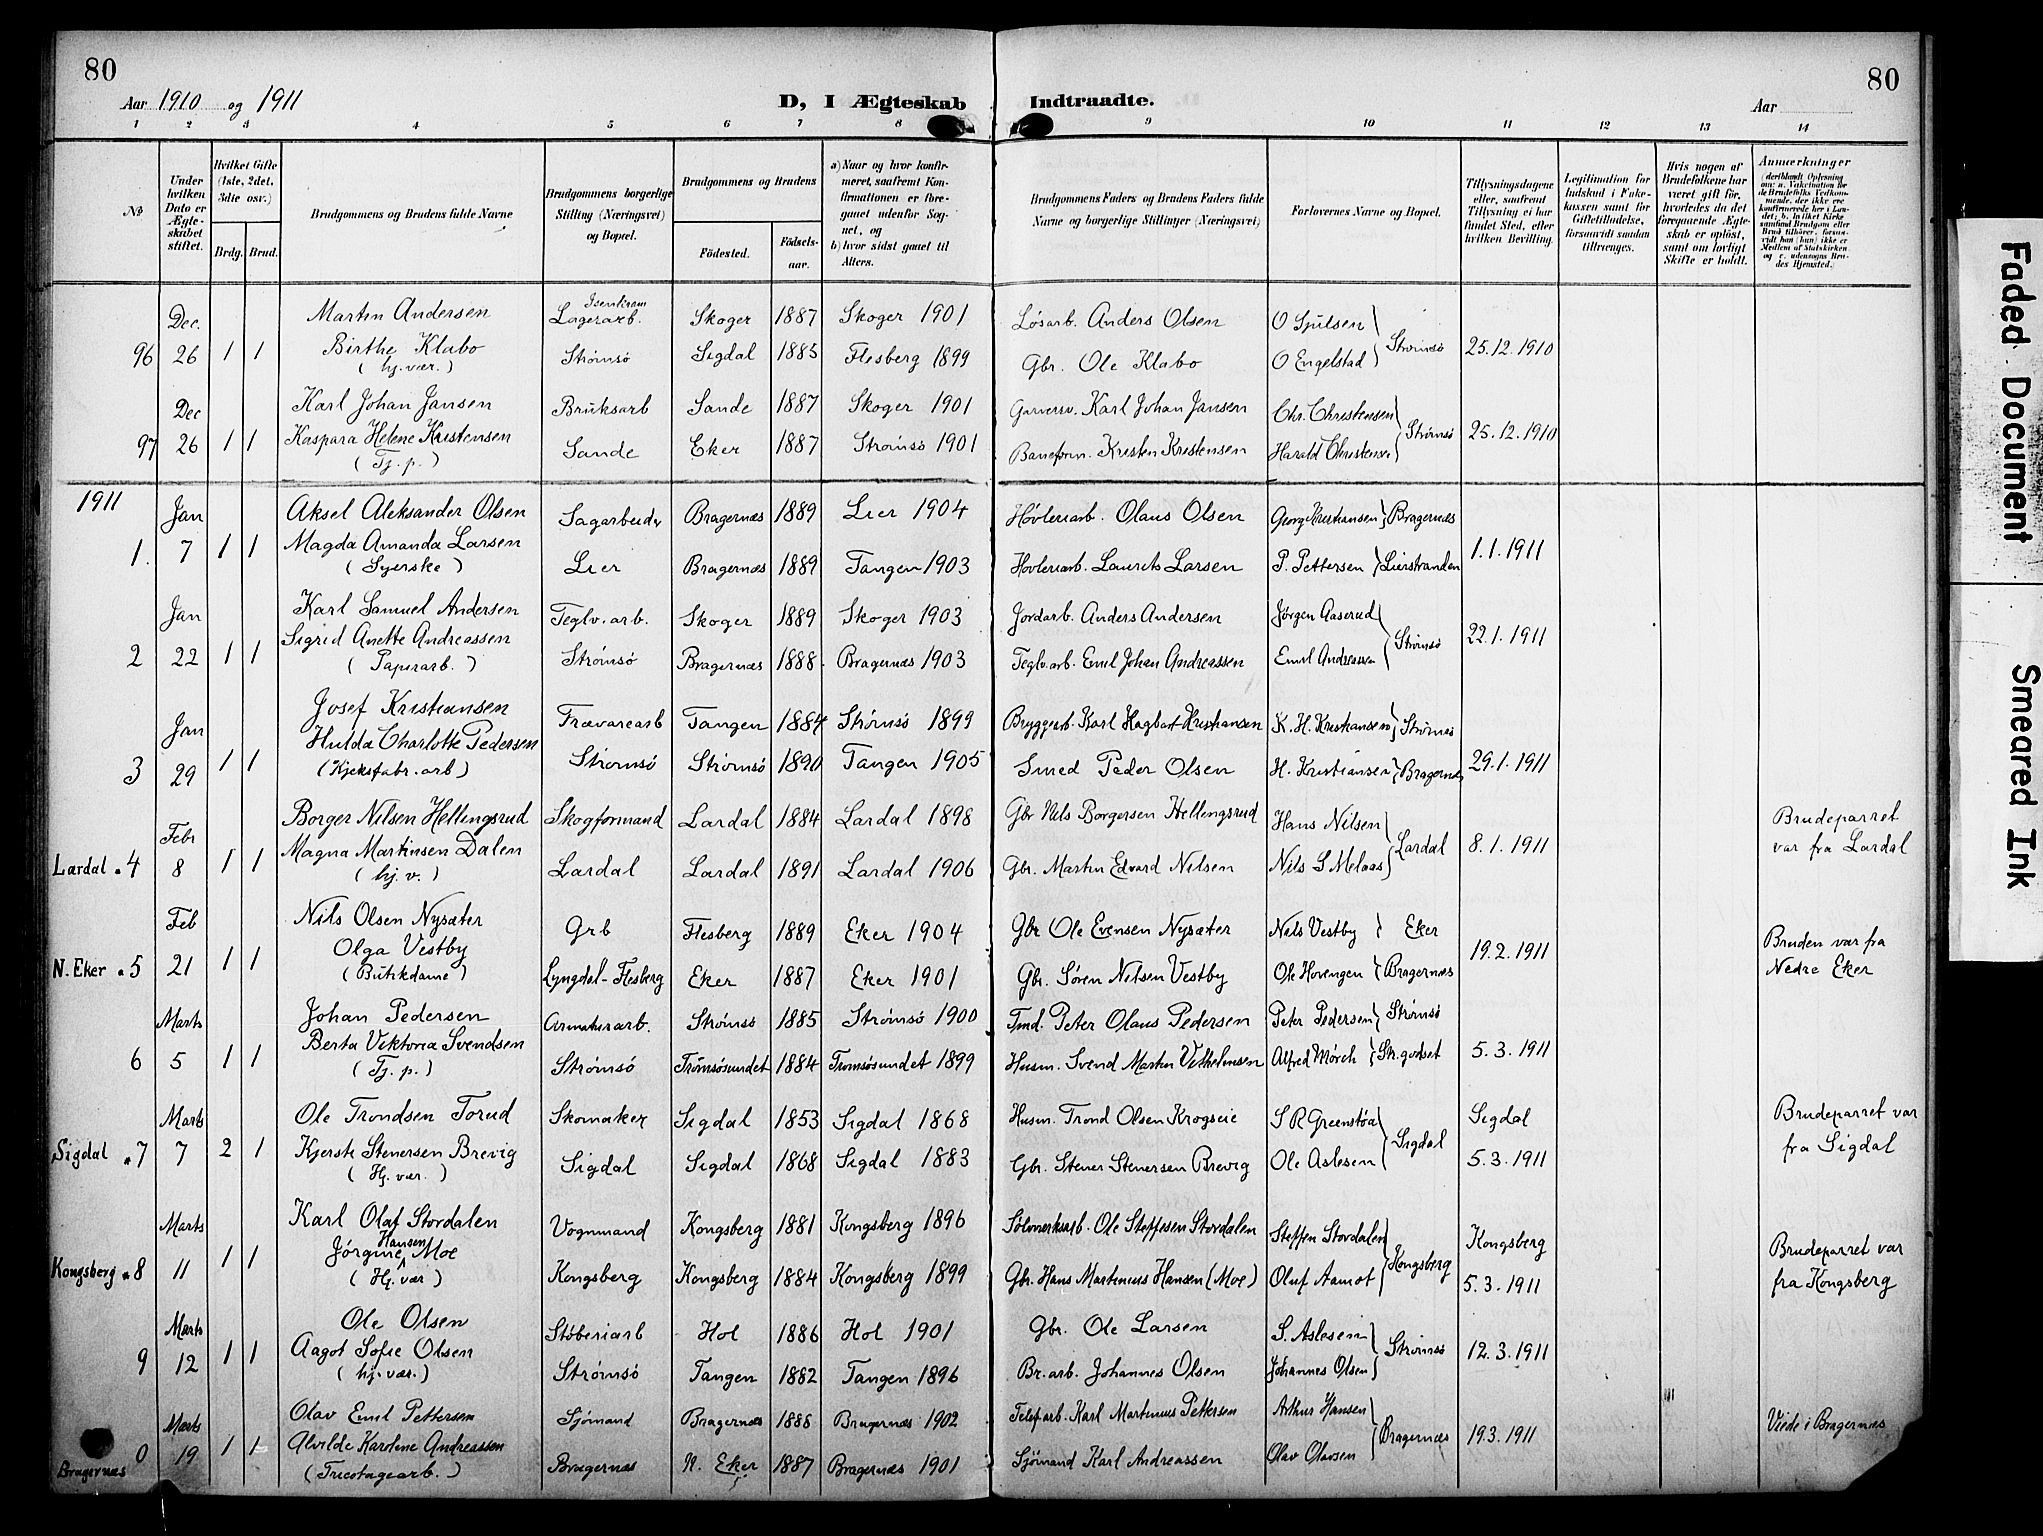 80
80
Aar 1910 og 1911
D, I Ægteskab Indtraadte.
Aar
1 2 3 4 5 6 7 8 9 10 11 12 13 14
№
Under hvilken Dato er Ægteskabet stiftet.
Hvilket Gifte (1ste, 2det, 3die osv.)
Brdg. Brud.
Brudgommens og Brudens fulde Navne
Brudgommens borgerlige Stilling (Næringsvei) og Bopæl.
Brudgommens og Brudens
Fødested.
Fødselsaar.
a) Naar og hvor konfirmeret, saafremt Konfirmationen er foregaaet udenfor Sognet, og
b) hvor sidst gaaet til Alters.
Brudgommens Faders og Brudens Faders fulde Navne og borgerlige Stillinger (Næringsvei)
Forlovernes Navne og Bopæl.
Tillysningsdagene eller, saafremt Tillysning ei har fundet Sted, efter hvilken Bevilling.
Legitimation for Indskud i Enkekassen samt for Giftetilladelse, forsaavidt saadan tiltrænges.
Hvis nogen af Brudefolkene har været gift før, hvorledes da det foregaaende Ægteskab er opløst, samt om lovligt Skifte er holdt.
Anmærkninger
(deriblandt Oplysning om: a. Vakcination for de Brudefolks Vedkommende, der ikke ere konfirmerede her i Landet; b. hvilket Kirkesamfund Brudgom eller Brud tilhører, forsaavidt han (hun) ikke er Medlem af Statskirken, og c. udensogns Brudes Hjemsted.)
Dec. Martin Andersen Isenkram Lagerarb. Skoger 1887 Skoger 1901 Løsarb. Anders Olsen O Sjulsen
96 26 1 1 Birthe Klabo Strømsö Sigdal 1885 Flesberg 1899 Gbr. Ole Klabo O Engelstad Strømsö 25.12.1910
(hj.vær.)
Dec Karl Johan Jansen Bruksarb Sande 1887 Skoger 1901 Garversv. Karl Johan Jansen Chr. Christensen
97 26 1 1 Kaspara Helene Kristensen Sande Eker 1887 Strømsö 1901 Baneform. Kristen Kristensen Harald Christensen Strømsö 25.12.1910
(Tj. p.)
1911
Jan Aksel Aleksander Olsen Sagarbeider Bragernæs 1889 Lier 1904 Høvleriarb. Olaus Olsen Georg Kristiansen Bragernæs
1. 7 1 1 Magda Amanda Larsen Lier Bragernæs 1889 Tangen 1903 Høvleriarb. Laurits Larsen P. Pettersen Lierstranden 1.1.1911
(Syerske)
Jan Karl Samuel Andersen Teglv.arb. Skoger 1889 Skoger 1903 Jordarb. Anders Andersen Jørgen Aaserud
2 22 1 1 Sigrid Anette Andreassen Strømsö Bragernæs 1888 Bragernæs 1903 Teglv.arb. Emil Johan Andreassen Emil Andreassen Strømsö 22.1.1911
(Papirarb.)
Jan Josef Kristiansen Trævarearb Tangen 1884 Strømsö 1899 Bryggerb. Karl Hagbart Kristiansen K. H. Kristiansen Strømsö
3 29 1 1 Hulda Charlotte Pedersen Strømsö Strømsö 1890 Tangen 1905 Smed Peder Olsen H. Kristiansen Bragernæs 29.1.1911
(Kjeksfabr.arb)
Febr Borger Nilsen Hellingsrud Skogformand Lardal 1884 Lardal 1898 Gbr Nils Borgersen Hellengsrud Hans Nilsen
Lardal 4 8 1 1 Magna Martinsen Dalen Lardal Lardal 1891 Lardal 1906 Gbr. Martin Edvard Nilsen Nils S Melaas Lardal 8.1.1911 Brudeparret var fra Lardal
(hj. v.)
Feb Nils Olsen Nysæter Grb Flesberg 1889 Eker 1904 Gbr Ole Evensen Nysæter Nils Vestby Eker
N. Eker 5 21 1 1 Olga Vestby Lyngdal-Flesberg Eker 1887 Eker 1901 Gbr. Søren Nilsen Vestby Ole Hovengen Bragernæs 19.2.1911 Bruden var fra Nedre Eker
(Butikdame)
Marts Johan Pedersen Armaturarb. Strømsö 1885 Strømsö 1900 Tmd. Peter Olaus Pedersen Peter Pedersen Strømsö
6 5 1 1 Berta Viktoria Svendsen Strømsö Tromsösundet 1884 Tromsösundet 1899 Husm. Svend Martin Vilhelmsen Alfred Mørch Str.godset 5.3.1911
(Tj. p.)
Marts Ole Trondsen Torud Skomaker Sigdal 1853 Sigdal 1868 Husm. Trond Olsen Krogseie S R Greenstøa Sigdal
Sigdal 7 7 2 1 Kjersti Stenersen Brevig Sigdal Sigdal 1868 Sigdal 1883 Gbr. Stener Stenersen Brevig Ole Aslesen Sigdal 5.3.1911 Brudeparret var fra Sigdal
(Hj. vær.)
Marts Karl Olaf Stordalen Vognmand Kongsberg 1881 Kongsberg 1896 Sölvverksarb. Ole Steffesen Stordalen Steffen Stordalen Kongsberg
Kongsberg 8 11 1 1 Jørgine Hansen Moe Kongsberg Kongsberg 1884 Kongsberg 1899 Gbr. Hans Martinius Hansen (Moe) Oluf Aamot Kongsberg 5.3.1911 Brudeparret var fra Kongsberg
(Hj. vær)
Marts Ole Olsen Støberiarb Hol 1886 Hol 1901 Gbr. Ole Larsen S. Aslesen
9 12 1 1 Aagot Sofie Olsen Strømsö Tangen 1882 Tangen 1896 Br.arb. Johannes Olsen Johannes Olsen Strømsö 12.3.1911
(hj.vær.)
Marts Olav Emil Pettersen Sjömand Bragernæs 1888 Bragernæs 1902 Telef arb. Karl Martinius Pettersen Arthur Hansen
0 19 1 1 Alvilde Karoline Andreassen Bragernæs N. Eker 1887 Bragernæs 1901 Sjömand Karl Andreassen Olav Olavsen Bragernæs 19.3.1911 Viede i Bragernæs
Bragernæs (Tricotagearb.)
Faded Document
Smeared Ink